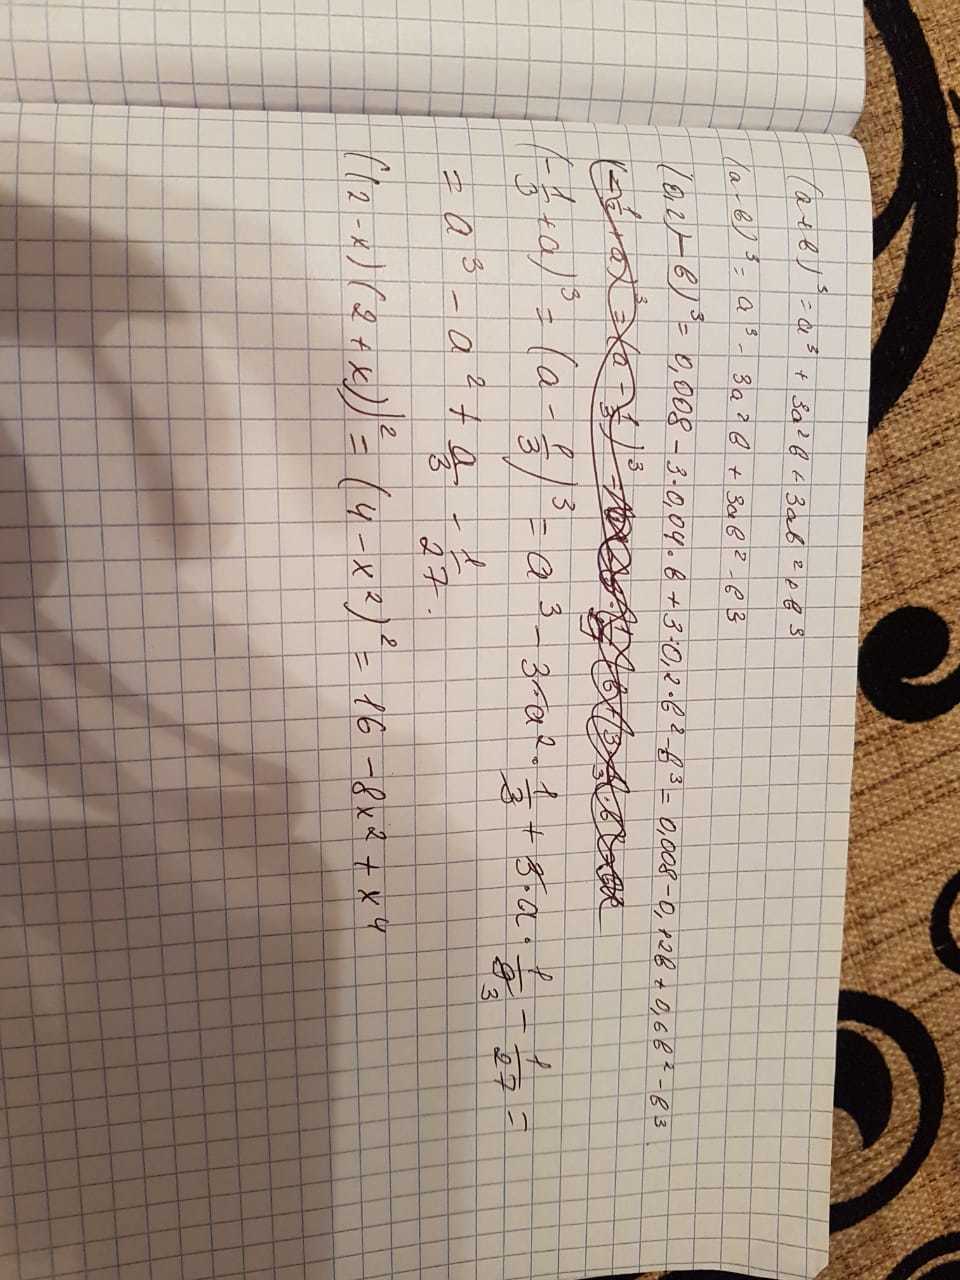 (a+b)³ = a³ + 3a²b + 3ab² + b³
(a-b)³ = a³ - 3a²b + 3ab² - b3
(0,2) - b)³ = 0,008 - 3·0,04·b + 3·0,2·b² - b³ = 0,008 - 0,12b + 0,6b² - b³.
(-1/3 + a)³ = (a - 1/3)³ = a³ - 3·a²·1/3 + 3·a·1/9 - 1/27 =
= a³ - a² + a/3 - 1/27.
((2-x)(2+x))² = (4-x²)² = 16 - 8x² + x⁴